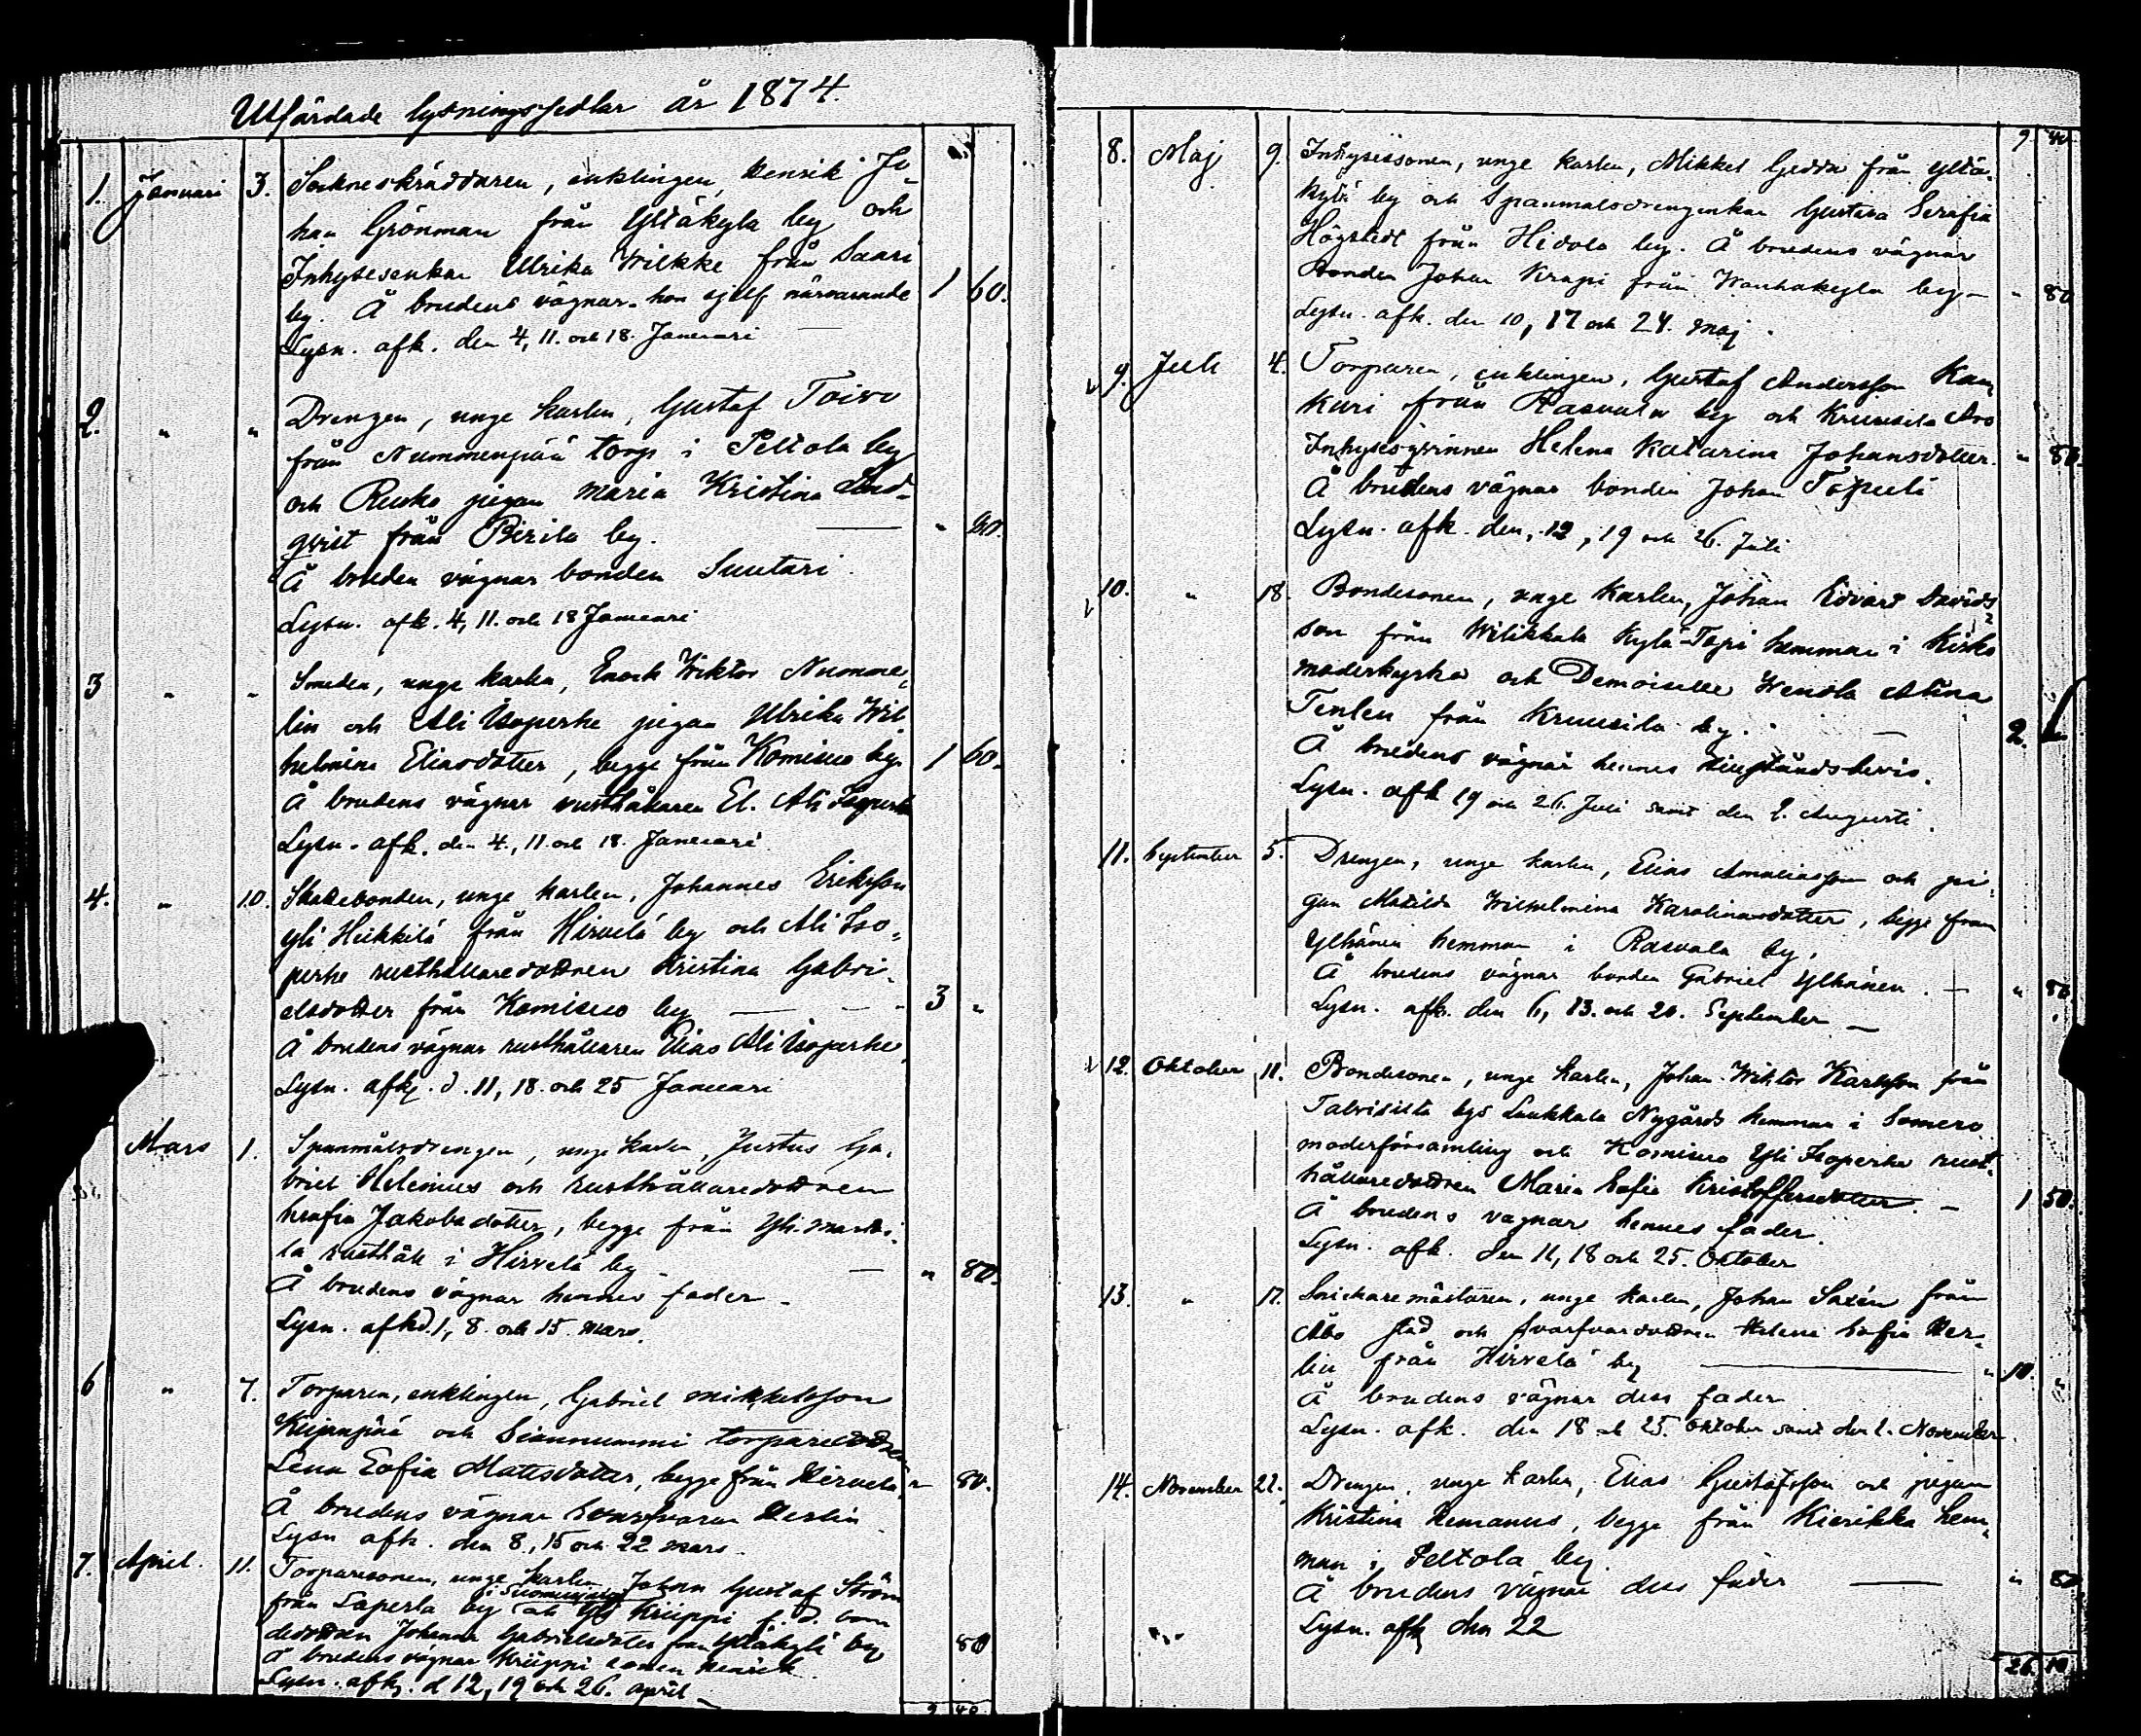 Utfärdade lysningssedlar år 1874.
1. Januari 3. Sockneskräddaren, enklingen, Henrik Jo-
han Grönman från Yltäkylä by och
Inhysesenkan Ulrika Wilkke från Saari
by. Å brudens vägnar hon sjelf närvarande 1 60.
Lysn. afk. den 4, 11. och 18. Januari
2. " " Drengen, unge karlen, Gustaf Toivo
från Nummenpää torp i Peltola by
och Rusko pigan Maria Kristina Lind-
qvist från Pirilä by. "
Å bruden vägnar bonden Suutari.
Lysn. afk. 4, 11. och 18 Januari
3 " " Smeden, unge karlen, Enock Wiktor Numme-
lin och Ali Isoperhe pigan Ulrika Wil-
helmina Eliasdotter, begge från Komisuo by. 1 60.
Å brudens vägnar rusthållaren El. Ali Isoperhe
Lysn. afk. den 4., 11. och 18. Januari.
4. " 10. Skattebonden, unge karlen, Johannes Eriksson
Yli Heikkilä från Hirvelä by och Ali Iso-
perhe rusthållaredottren Kristina Gabri-
elsdotter från Komisuo by 3 "
Å brudens vägnar rusthållaren Elias Ali Isoperhe
Lysn. afk. d. 11, 18. och 25 Januari
Mars 1. Spanmålsdrengen, unge karlen, Justus Ga-
briel Helenius och rusthållaredottren
Serafia Jakobsdotter, begge från Yli Martti-
la rusthåll i Hirvelä by " 80.
Å brudens vägnar hennes fader
Lysn. afk d. 1, 8. och 15. mars.
6 " 7. Torparen, enklingen, Gabriel Mikkelsson
och torparedottren
Lena Sofia Mattsdotter, begge från Hirvelä " 80.
Å brudens vägnar Svarfvaren Merlin
Lysn afk. den 8., 15 och 22 mars.
7. April. 11. Torparesonen, unge karlen Johan Gustaf Ström
i Suomusjärvi
från Laperla by och Yli Kruppi f. d. bon-
dedottren Johanna Gabrielsdotter från Yltäkylä by 80
Å brudens vägnar Kruppi bonden Henrik
Lysn. afk. d 12, 19 och 26. april
9 40.
9. 40.
8. Maj 9. Inhysessonen, unge karlen, Mikkel Gedda från Yltä-
kylä by och Spanmålsdrengenkan Gustava Serafia
Högstedt från Hidola by. Å brudens vägnar
Bonden Johan Krapi från Wanhakylä by " 80
Lysn. afk. den 10, 17 och 24. maj.
9. Juli 4. Torparen, enklingen, Gustaf Andersson Kan-
kuri från Rasvala by och Kruusila Aro
Inhysesqvinnen Helena Katarina Johansdotter. " 80.
Å brudens vägnar bonden Johan
Lysn. afk. den, 12, 19 och 26. Juli
10. " 18. Bondesonen, unge Karlen, Johan Edvard Davids-
son från Wilikkala Kylä-Topi hemman i Kisko
moderkyrka och Demoiselle Wendla Alina
Tenlen från Kruusila by. 2.
Å brudens vägnar hennes tillståndsbevis.
Lysn. afk 19 och 26. Juli samt den 2. Augusti.
11. September 5. Drengen, unge karlen, Elias Amaliasson och pi-
gan Matilda Wilhelmina Karolinasdotter, begge från
Ylhänen hemman i Rasvala by.
Å brudens vägnar bonden Gabriel Ylhänen. " 80.
Lysn. afk. den 6, 13. och 20. September
12. Oktober 11. Bondesonen, unge karlen, Johan Wiktor Karlsson från
Talvisilta bys Laukkala Nygårds hemman i Somero
moderförsamling och Komisuo Yli Isoperhe rust-
hållaredottren Maria Sofia Kristoffersdotter. 1 50.
Å brudens vägnar hennes fader.
Lysn. afk. den 11, 18 och 25. Oktober
13. " 17. Snickaremästaren, unge karlen, Johan Saxén från
Åbo stad och Svarfvardottren Helena Sofia Mer-
lin från Hirvelä by " 10. "
Å brudens vägnar dess fader
Lysn. afk. den 18 och 25. Oktober samt den 1. November.
14. November 22. Drengen, unge karlen, Elias Gustafsson och pigan
Kristina Hemanus, begge från Kierikka hem-
man i Peltola by.
Å brudens vägnar dess fader " 80
Lysn. afk den 22
26. 10